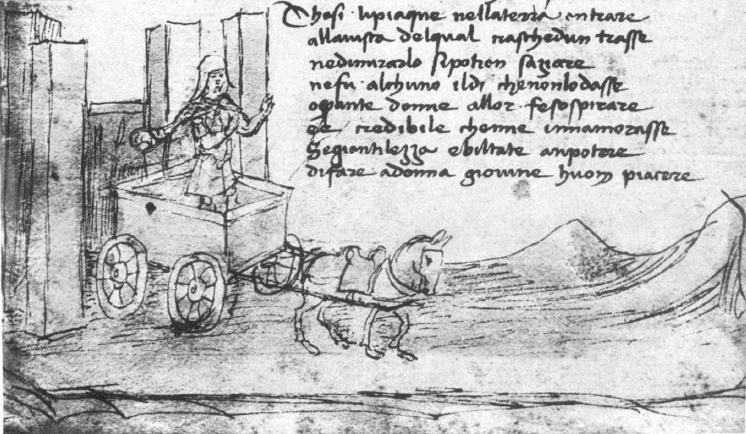 Chosi lipiaque nellaterra entrare
allauista delqual ciaschedun trasse
nedimirarlo sipotien saziare
nefu alchuno ildi chenonlodasse
oquante donne allor fesospirare
credibile chenne innamorasse
Segiantilezza ebiltate anpotere
difare adonna giouine huom piacere